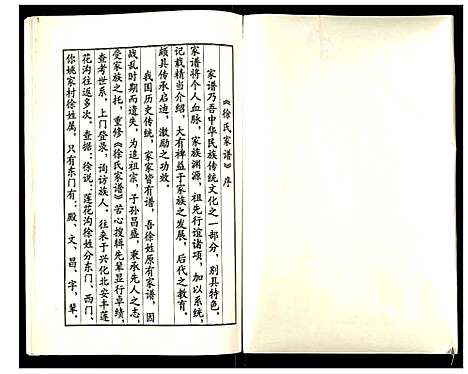 《徐氏家谱》序
家谱乃吾中华民族传统文化之一部分，别具特色。
家谱将个人血脉，家族渊源，祖先行谊诸项，加以系统，
记载精当介绍，大有裨益于家族之发展，后代之教育。
颇具传承启迪，激励之功效。
我国历史传统，家家皆有谱，吾徐姓原有家谱，因
战乱时期而遗失，为追祖宗，子孙昌盛，秉承先人之志，
受家族之托，重修《徐氏家谱》苦心搜辑先辈显行卓绩，
查考世系，上门登录，询访族人，往来于兴化北安丰莲
花沟往返多次。查据：徐说：莲花沟徐姓分东门、西门、
你姚家村徐姓属，只有东门有：殿、文、昌、字，辈。